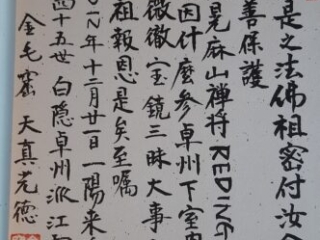 是之法佛祖密付汝今
善保護
晃麻山禅将REDING
因什麼参卓州下室内
微徹宝鏡三昧大事
祖報恩是矣至嘱
八年十二月廿一日一陽来
四十五世 白隐卓州派江
金毛窟 天真